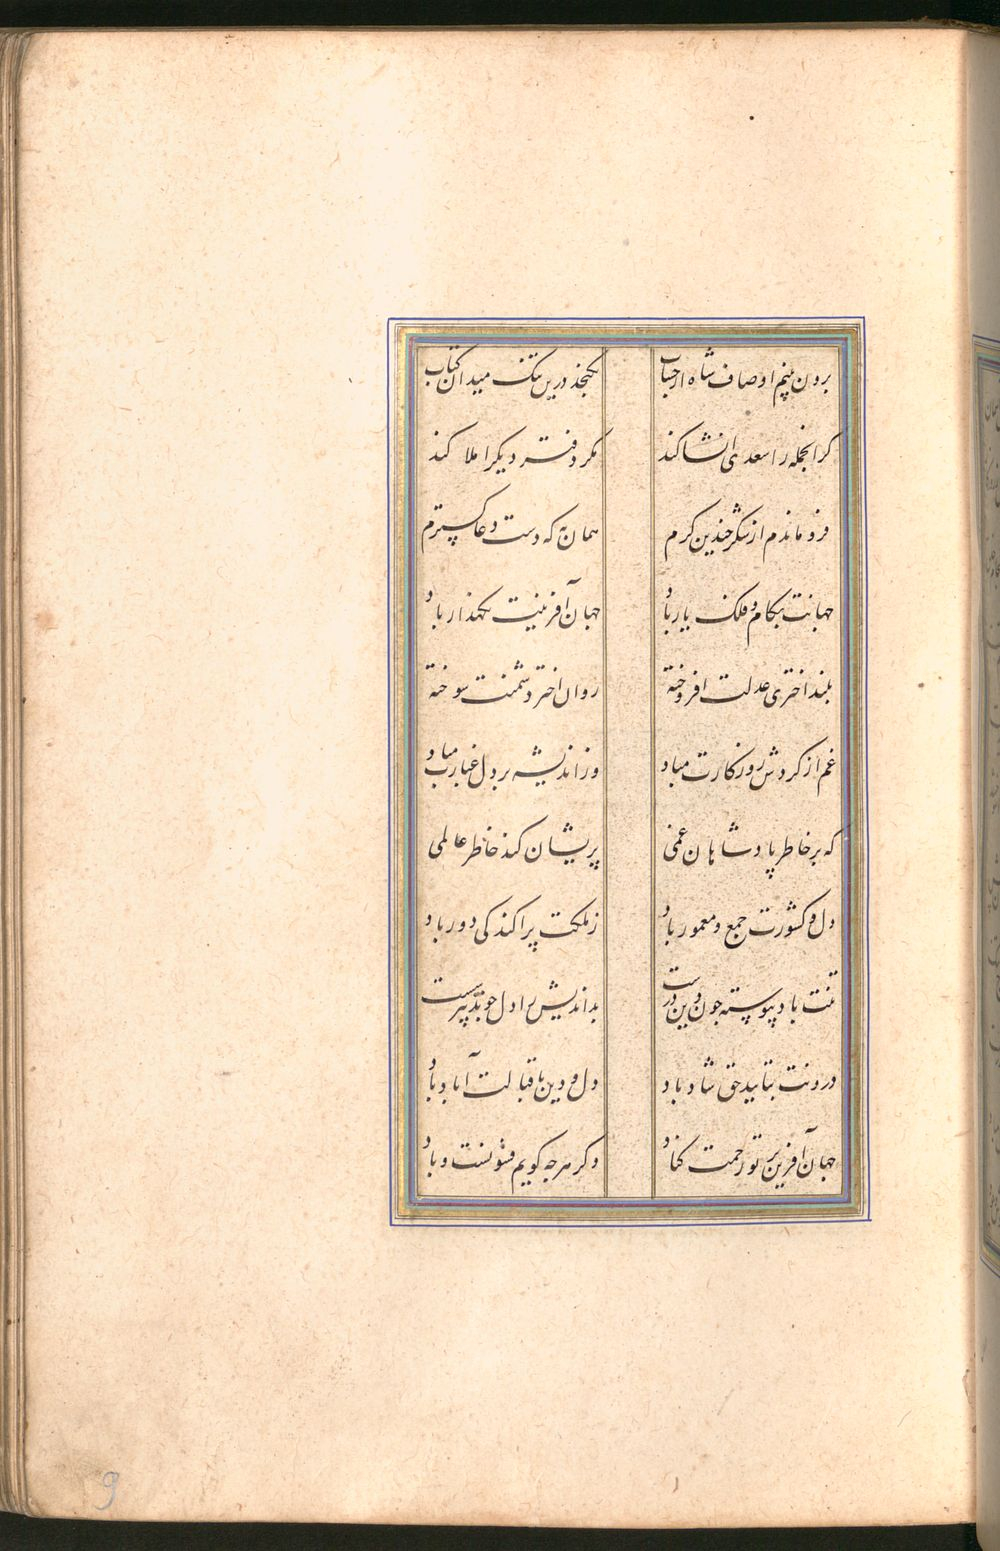 برون بینم اوصاف شاه از حساب نکنجد درین تنک میدان کتاب
کر انجمله را سعدی انشا کند مکر دفتر دیکر املا کند
فرو ماندم از شکر چندین کرم همان به که دست دعا کسترم
جهانت بکام و فلک یار باد جهان آفرینت نکهدار باد
بلند اختری عدلت افروخته روان اختر دشمنت سوخته
غم از کردش روزکارت مباد وز اندیشه بر دل غبارت مباد
که بر خاطر پادشاهان غمی پریشان کند خاطر عالمی
دل و کشورت جمع و معمور باد ز ملکت پراکندکی دور باد
تنت باد پیوسته جون دین درست بداندیش را دل جو تدبیر سست
درونت بتایید حق شاد باد دل و دین باقبالت آباد باد
جهان آفرین بر تو رحمت کناد دکر هرجه کویم فسونست و باد
9